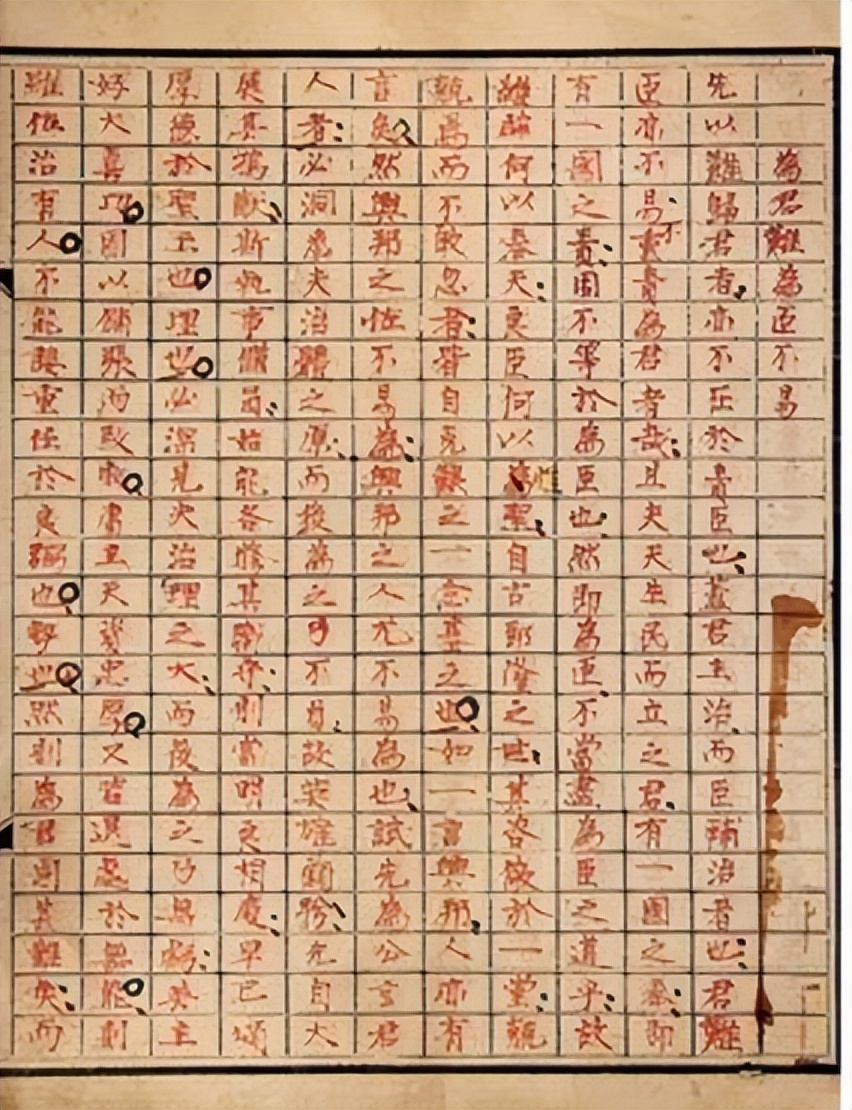 為君難為臣不易
先以難歸君者亦不在於責臣也蓋君主治而臣輔治者也君難
臣亦不易不責為君者哉且夫天生民而立之君有一國之奉即
有一國之貴固不等於為臣也然即為臣不當盡為臣之道乎故
何以奉天良臣何以聖自古郅隆之世其咨儆於一堂兢
兢焉而不敢忽君胥自克艱之一念基之也如一言興邦人亦有
言矣然興邦之不易為興邦之人尤不易為也試先為公言君
人者必洞悉夫治體之原而後為之乃不故英雄顧盼允自大
展其鴻猷斯執事備員始能各修其職守則當明良相慶早已頌
厚德於聖王也理也必深見夫治理之大而後為之乃無英主
好大喜功固以鋪張而致敗庸主天資忠厚又苦選於無能則
雖位治有人亦能誤重任於良弼也勢也然則為君則其難矣而